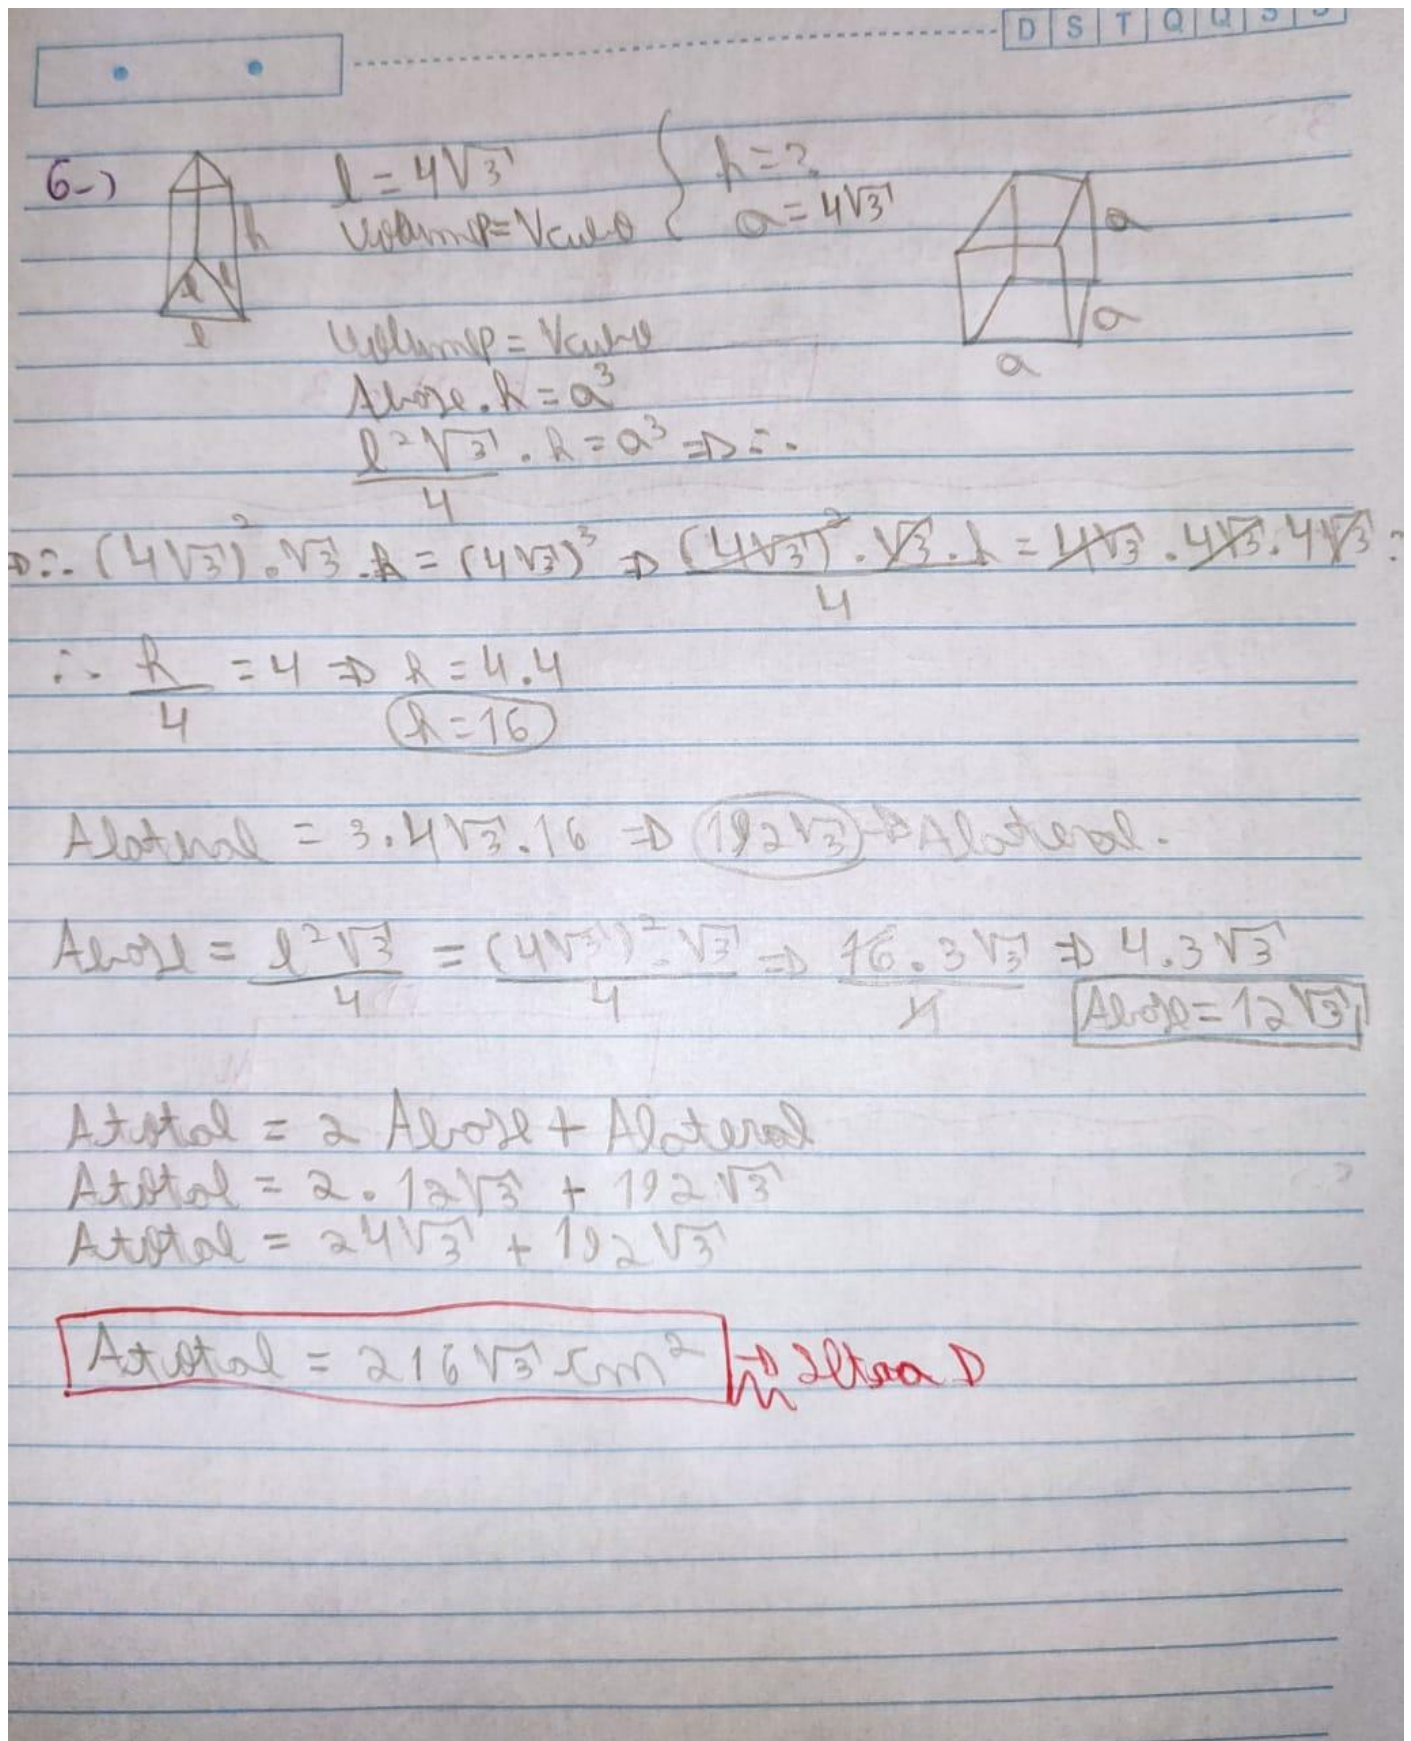 D S T Q Q S S
6-)
l = 4√3
Volume = Vcubo
h = ?
a = 4√3
h
l
l
l
a
a
a
Volume = Vcubo
Abase . h = a³
l²√3/4 . h = a³ ⇒ ∴
⇒ ∴ (4√3)² . √3 . h = (4√3)³ ⇒ (4√3)² . √3 . h / 4 = 4√3 . 4√3 . 4√3 ∴
∴ h/4 = 4 ⇒ h = 4.4
h = 16
Alateral = 3.4√3.16 ⇒ 192√3 → Alateral.
Abase = l²√3/4 = (4√3)².√3/4 ⇒ 16.3√3/4 ⇒ 4.3√3
Abase = 12√3
Atotal = 2 Abase + Alateral
Atotal = 2 . 12√3 + 192√3
Atotal = 24√3 + 192√3
Atotal = 216√3 cm² ⇒ letra D